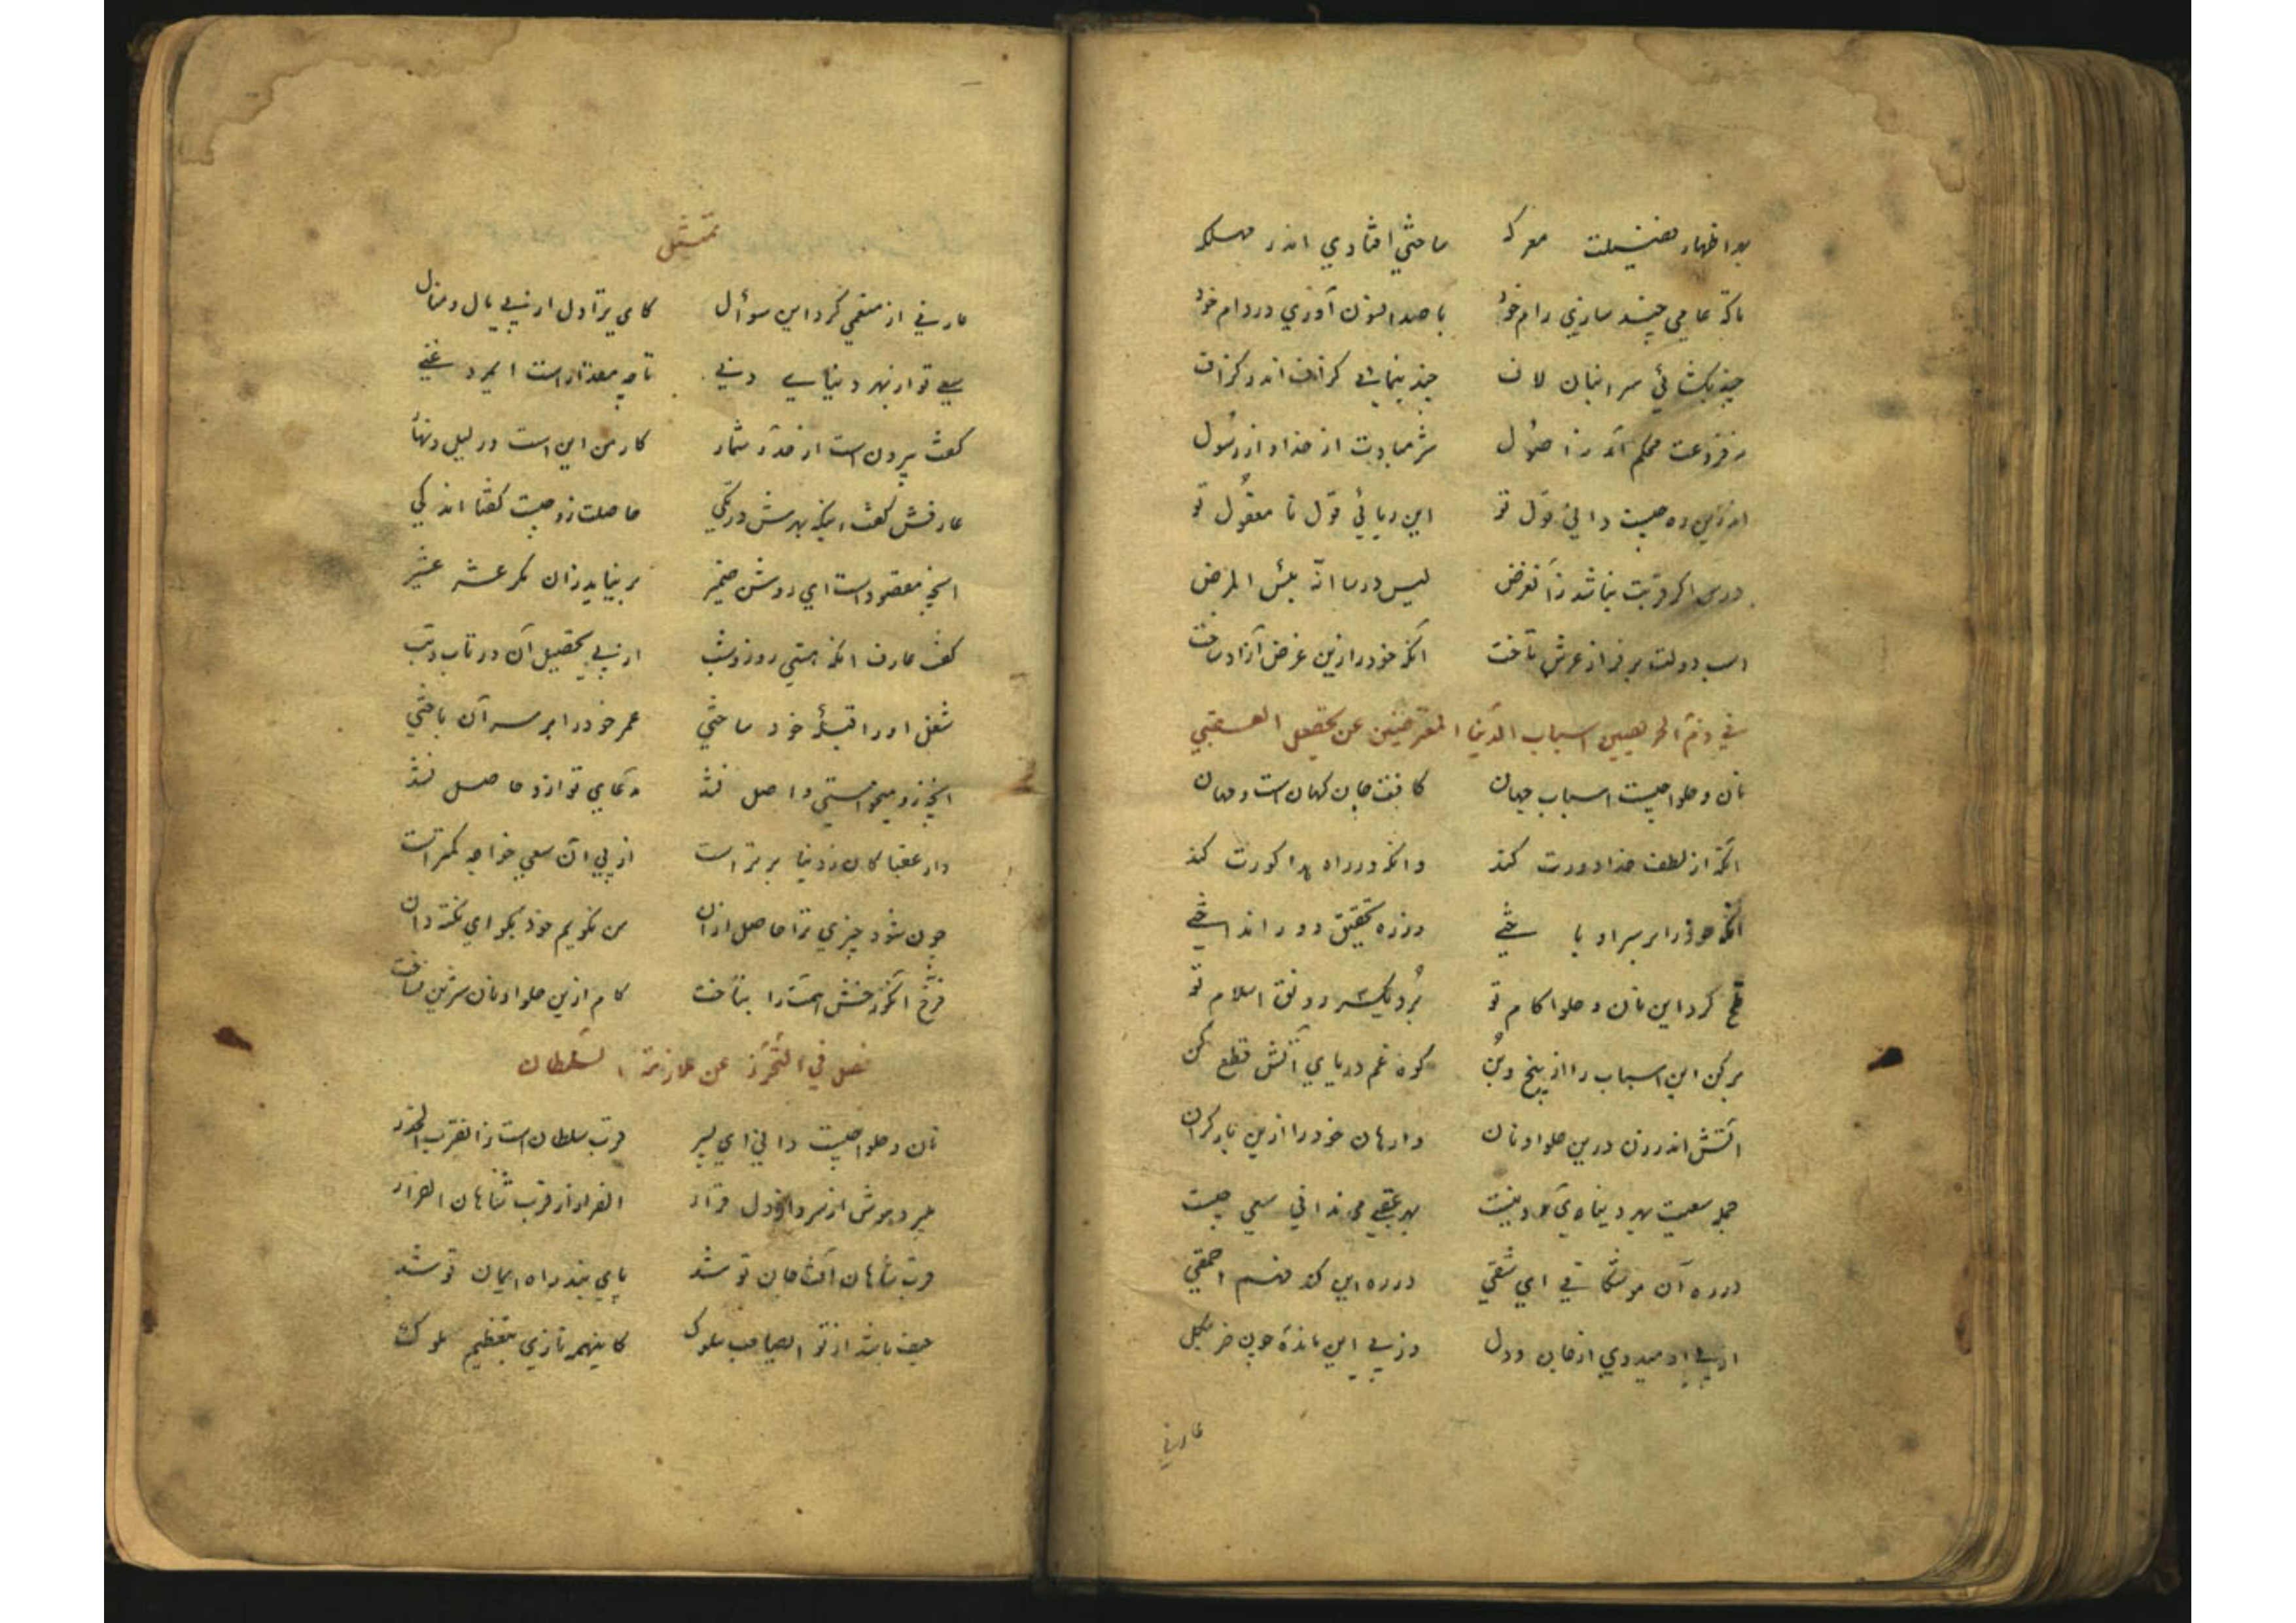 بهر اظهار فضیلت معرکه ساختی افتادی اندر مهلکه
تا که عامی چند سازی رام خود با صد افسون آوری در دام خود
چند بگشائی سر انبان لاف چند پیمائی گزاف اندر گزاف
نه فروعت محکم آمد نه اصول شرم بادت از خدا و از رسول
اندرین ره چیست دانی غول تو این ریائی درس نا معقول تو
درس اگر قربت نباشد زان غرض لیس درسا انه بئس المرض
اسب دولت بر فراز عرش تاخت آنکه خود را زین غرض آزاد ساخت
في ذم المحرصین اسباب الدنیا المعرضین عن تحصیل العقبي
نان و حلوا چیست اسباب جهان کافت جان کهان است و مهان
آنکه از لطف خدا دورت کند وانکه در راه هدا کورت کند
آنکه خود را بر سر او باختی وز ره تحقیق دور انداختی
تلخ کرد این نان و حلوا کام تو برد یکسر رونق اسلام تو
برکن این اسباب را از بیخ و بن کوه غم دریای آتش قطع کن
آتش اندر زن درین حلوا و نان وارهان خود را ازین بار گران
جمله سعیت بهر دنیای دنیست بهر عقبی می ندانی سعی چیست
در ره آن موشکافی ای شقی در ره این کند فهم احمقی
از پی او میدوی از جان و دل وز پی این مانده چون خر بگل
عارفي
تمثیل
عارفي از منعمي کرد این سوأل کای ترا دل از پي مال و منال
سعی تو از بهر دنیای دني تا چه مقدار است ای مرد غني
گفت بیرون است از حد و شمار کار من این است در لیل و نهار
عارفش گفت اینکه بهرش در تکي حاصلت زو چیست گفتا اندکي
آنچه مقصود است ای روشن ضمیر بر نیاید زان مگر عشر عشیر
گفت عارف آنکه هستي روز و شب از پي تحصیل آن در تاب و تب
شغل او را قبلهٔ خود ساختي عمر خود را بر سر آن باختي
آنچه زو میخواستي واصل نشد مدعای تو ازو حاصل نشد
دار عقبا کان ز دنیا برتر است از پي آن سعی خواجه کمتر است
چون شود چیزي ترا حاصل ازان من نگویم خود بگو ای نکته دان
فرخ آنکو رخش همت را بتاخت کام ازین حلوا و نان شیرین نساخت
فصل في التحرز عن ملازمة السلطان
نان و حلوا چیست داني ای پسر قرب سلطان است زان قرب الحذر
میبرد هوش از سر و از دل قرار الفرار از قرب شاهان الفرار
قرب شاهان آفت جان تو شد پای بند راه ایمان تو شد
حیف باشد از تو ای صاحب سلوک کاینهمه نازي بتعظیم ملوک